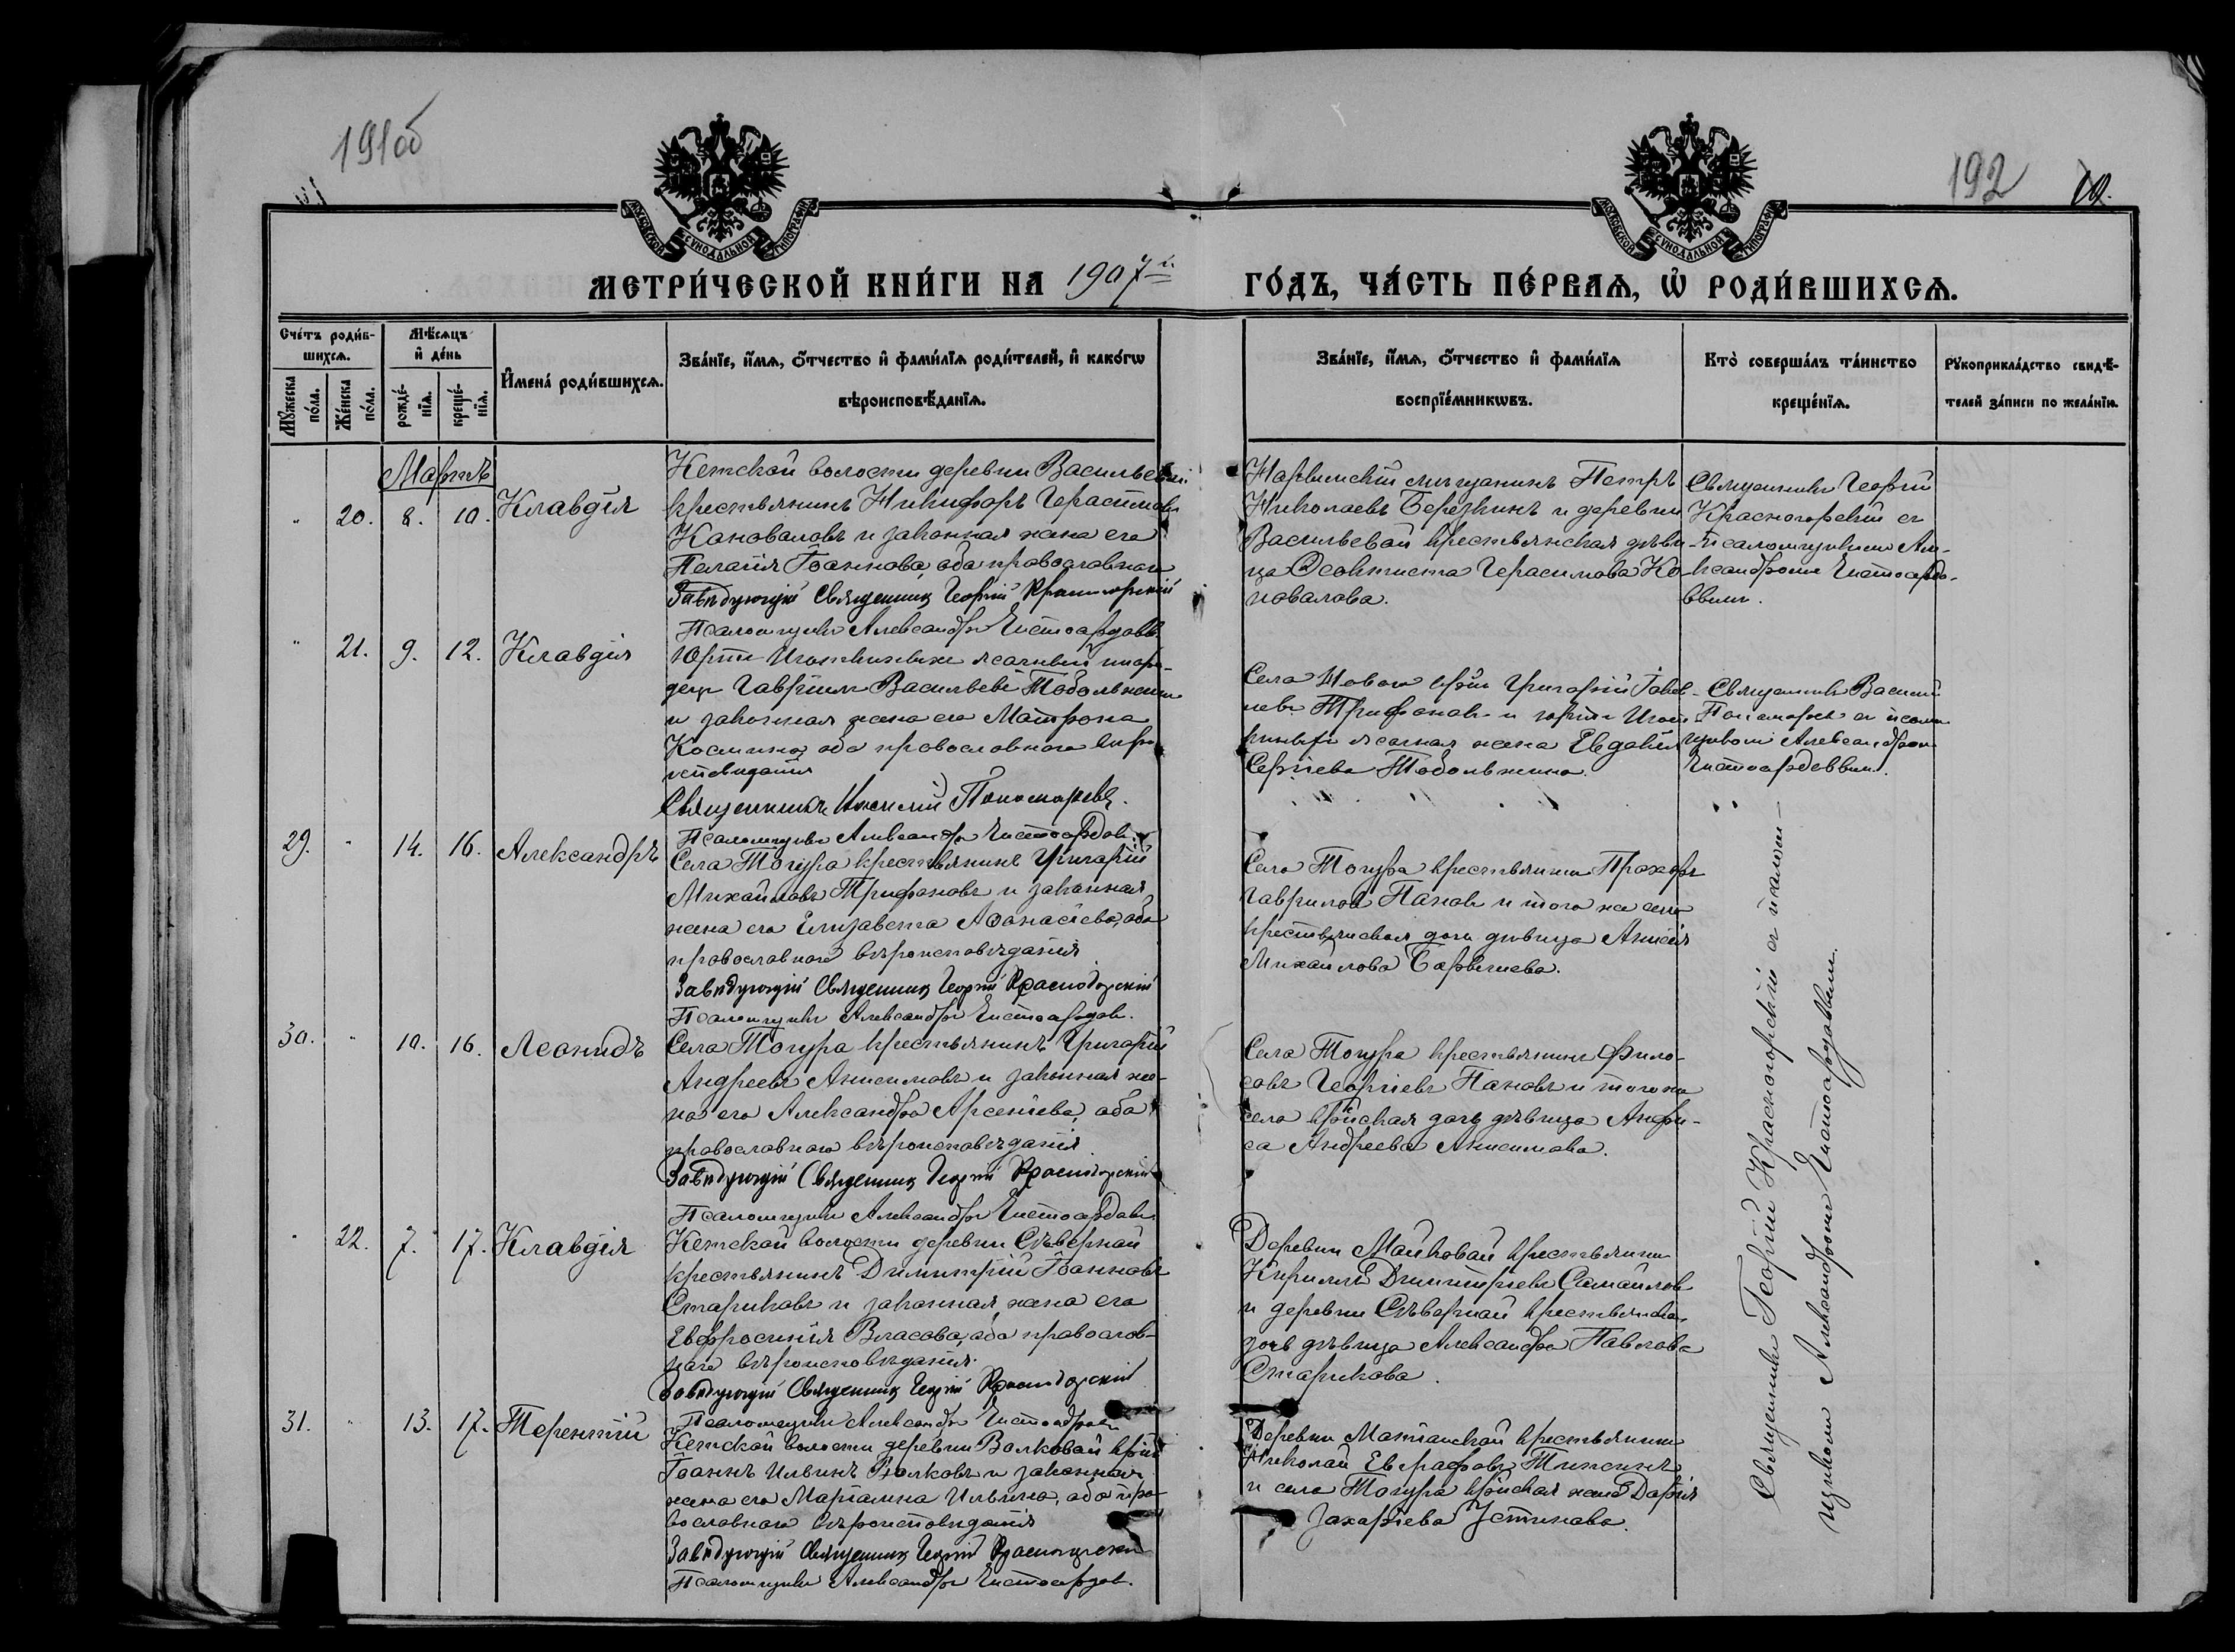 191об
192
10.
МОСКОВСКОЙ СѴНОДАЛЬНОЙ ТИПОГРАФІИ
МОСКОВСКОЙ СѴНОДАЛЬНОЙ ТИПОГРАФІИ
МЕТРИ́ЧЕСКОЙ КНИ́ГИ НА 1907й ГО́ДЪ, ЧА́СТЬ ПЕ́РВАѦ, Ѡ҆ РОДИ́ВШИХСѦ.
Сче́тъ роди́в-
шихсѧ.
Мꙋ́жеска по́ла.
Же́нска по́ла.
Мѣ́сѧцъ
и҆ де́нь
рожде́-
нїѧ.
креще́-
нїѧ.
И҆мена̀ роди́вшихсѧ.
Зва́нїе, и҆́мѧ, ѻ҆́тчество и҆ фами́лїѧ роди́телей, и҆ како́гѡ
вѣроисповѣ́данїѧ.
Зва́нїе, и҆́мѧ, ѻ҆́тчество и҆ фами́лїѧ
воспрїе́мникѡвъ.
Кто̀ соверша́лъ та́инство
креще́нїѧ.
Рꙋкоприкла́дство свидѣ́-
телей за́писи по жела́нїю.
Мартъ
" 20. 8. 10. Клавдія
Кетской волости деревни Васильевой
крестьянинъ Никифоръ Герасимовъ
Коноваловъ и законная жена его
Пелагія Іоаннова, оба православнаго
Завѣдующій Священникъ Георгій Красногорскій
Псаломщикъ Александръ Чистосердовъ.
Нарымскій мѣщанинъ Петръ
Николаевъ Березкинъ и деревни
Васильевой крестьянская дѣви-
ца Ѳеоктиста Герасимова Ко-
новалова.
Священникъ Георгій
Красногорскій съ
псаломщикомъ Але-
ксандромъ Чистосердо-
вымъ.
" 21. 9. 12. Клавдія
Юртъ ясачный иноро-
децъ Гавріилъ Васильевъ Тобольжинъ
и законная жена его Матрона
Космина, оба православнаго вѣро-
исповѣданія
Священникъ Василій Пономаревъ.
Псаломщикъ Александръ Чистосердовъ.
Села Новаго кр-нъ Григорій Іовле-
въ Трифоновъ и юртъ
ясачная жена Евдокія
Сергіева Тобольжина.
Священникъ Василій
Пономаревъ съ псалом-
щикомъ Александромъ
Чистосердовымъ.
29. " 14. 16. Александръ
Села Тогура крестьянинъ Григорій
Михайловъ Трифоновъ и законная
жена его Елизавета Аѳанасіева, оба
православнаго вѣроисповѣданія
Завѣдующій Священникъ Георгій Красногорскій
Псаломщикъ Александръ Чистосердовъ.
Села Тогура крестьянинъ Прохоръ
Гавриловъ Пановъ и того же села
крестьянская дочь дѣвица Анисія
Михайлова Барышева.
30. " 10. 16. Леонидъ
Села Тогура крестьянинъ Григорій
Андреевъ Анисимовъ и законная же-
на его Александра Арсеніева, оба
православнаго вѣроисповѣданія
Завѣдующій Священникъ Георгій Красногорскій
Псаломщикъ Александръ Чистосердовъ.
Села Тогура крестьянинъ Фило-
совъ Георгіевъ Пановъ и того же
села кр-нская дочь дѣвица Анфи-
са Андреева Анисимова.
" 22. 7. 17. Клавдія
Кетской волости деревни Сѣверной
крестьянинъ Димитрій Іоанновъ
Стариковъ и законная жена его
Евфросинія Власова, оба православ-
наго вѣроисповѣданія.
Завѣдующій Священникъ Георгій Красногорскій
Псаломщикъ Александръ Чистосердовъ
Деревни Майковой крестьянинъ
Кириллъ Димитріевъ Самойловъ
и деревни Сѣверной крестьянская
дочь дѣвица Александра Павлова
Старикова.
31. " 13. 17. Терентій
Кетской волости деревни Волковой кр-нъ
Іоаннъ Ильинъ Волковъ и законная
жена его Маріамна Ильина, оба пра-
вославнаго вѣроисповѣданія
Завѣдующій Священникъ Георгій Красногорскій
Псаломщикъ Александръ Чистосердовъ.
Деревни крестьянинъ
Николай Евграфовъ
и села Тогура кр-нская жена Дарія
Захаріева Устинова.
Священникъ Георгій Красногорскій съ псалом-
щикомъ Александромъ Чистосердовымъ.